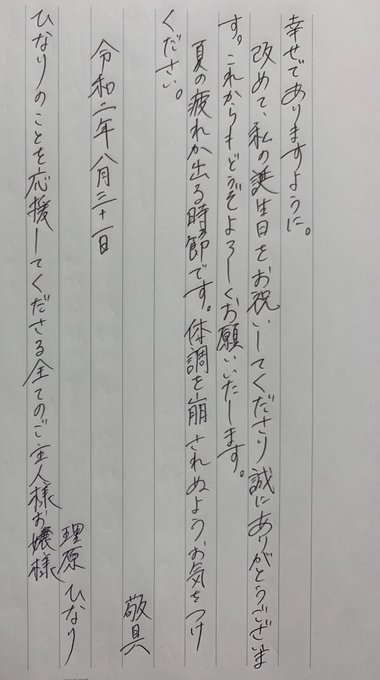 幸せでありますように。
改めて、私の誕生日をお祝いしてくださり誠にありがとうございま
す。これからもどうぞよろしくお願いいたします。
夏の疲れが出る時節です。体調を崩されぬよう、お気をつけ
ください。
敬具
令和二年八月三十一日
理原ひなり
ひなりのことを応援してくださる全てのご主人様お嬢様